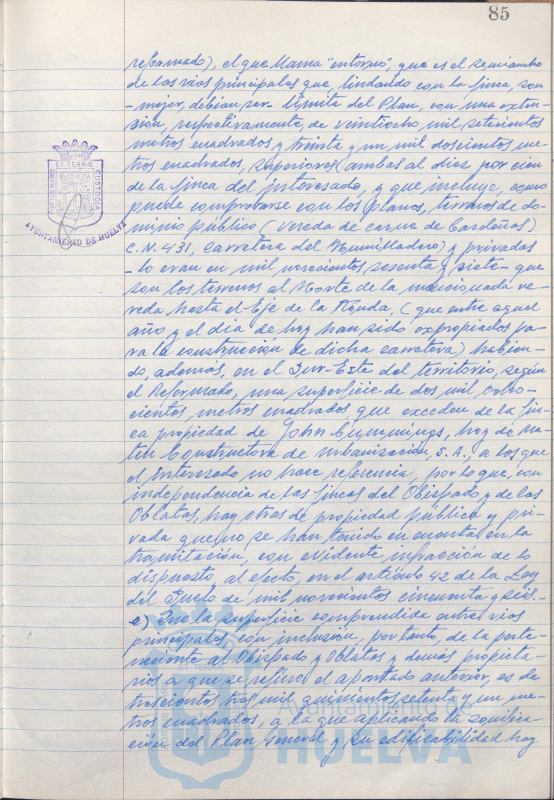 85
reformado), el que llama "entorno", que es el semiancho
de las vias principales que, lindando con la finca, son
- mejor, debian ser - limite del Plan, con una exten-
sión, respectivamente, de veintiocho mil setecientos
metros cuadrados y treinta y un mil doscientos me-
tros cuadrados, superiores ambas al diez por cien
de la finca del interesado, y que incluye, como
puede comprobarse con los planos, terrenos de do-
minio público (Vereda de carne de Cardeñas)
C.N. 431, carretera del Humilladero) y privados
- lo eran en mil novecientos sesenta y siete - que
son los terrenos al Norte de la mencionada ve-
reda hasta el Eje de la Ronda, (que entre aquel
año y el dia de hoy han sido expropiados pa-
ra la construcción de dicha carretera) habien-
do, además, en el Sur-Este del territorio, según
el Reformado, una superficie de dos mil, ocho-
cientos, metros cuadrados, que exceden de la fin-
ca propiedad de John Cummings, hoy de Ma-
teu Constructora de Urbanización, S.A., a los que
el interesado no hace referencia, por lo que, con
independencia de las fincas del Obispado y de las
Oblatas, hay otras de propiedad pública y pri-
vada que no se han tenido en cuenta en la
tramitación, con evidente infracción de lo
dispuesto, al efecto, en el artículo 42 de la Ley
del Suelo de mil novecientos cincuenta y seis.-
e) Que la superficie comprendida entre vias
principales con inclusión, por tanto, de la perte-
neciente al Obispado y Oblatas y demás propieta-
rios a que se refiere el apartado anterior, es de
trescientos tres mil quinientos setenta y un me-
tros cuadrados, a la que aplicando la zonifica-
ción del Plan General y su edificabilidad hay
AYUNTAMIENTO DE HUELVA
Ayuntamiento de
HUELVA